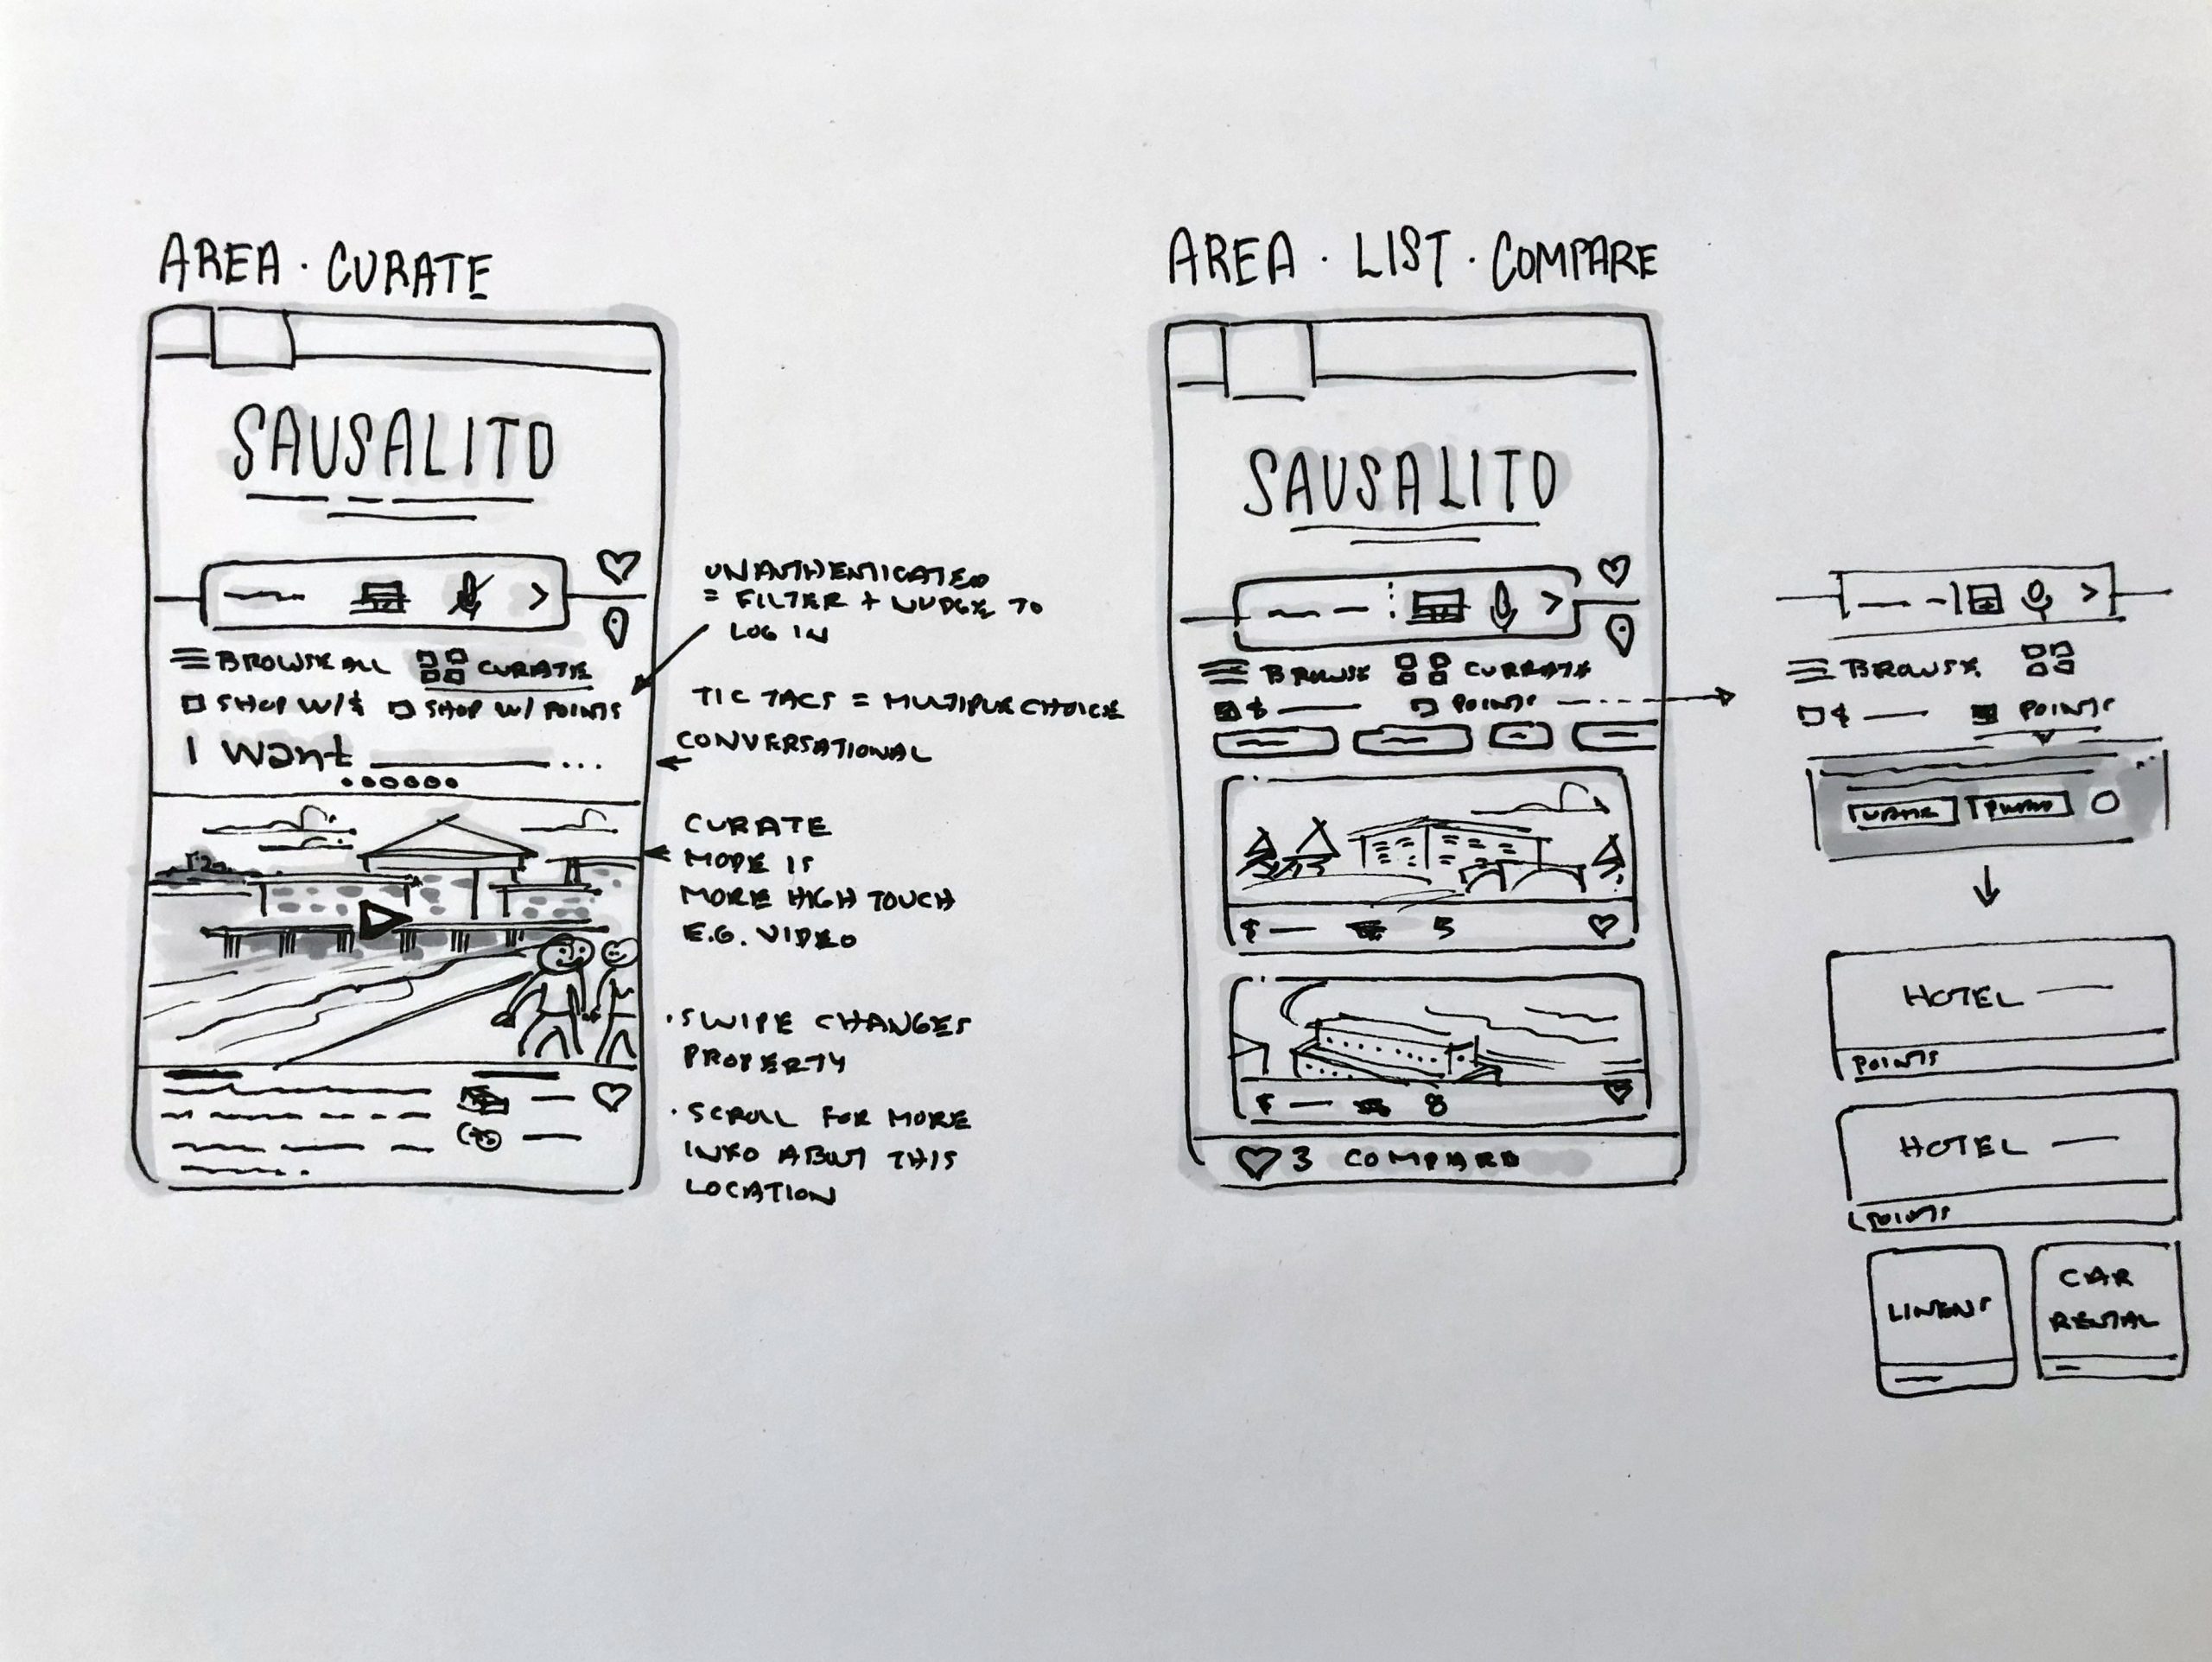 AREA · CURATE
SAUSALITO
BROWSE ALL CURATE
SHOP W/$ SHOP W/ POINTS
I want ...
UNAUTHENTICATED
= FILTER + NUDGE TO
LOG IN
TIC TACS = MULTIPLE CHOICE
CONVERSATIONAL
CURATE
MODE IS
MORE HIGH TOUCH
E.G. VIDEO
· SWIPE CHANGES
PROPERTY
· SCROLL FOR MORE
INFO ABOUT THIS
LOCATION
AREA · LIST · COMPARE
SAUSALITO
BROWSE CURRATE
$ POINTS
$ 5
$ 8
3 COMPARE
BROWSE
$ POINTS
HOTEL
POINTS
HOTEL
POINTS
LINENS
CAR
RENTAL